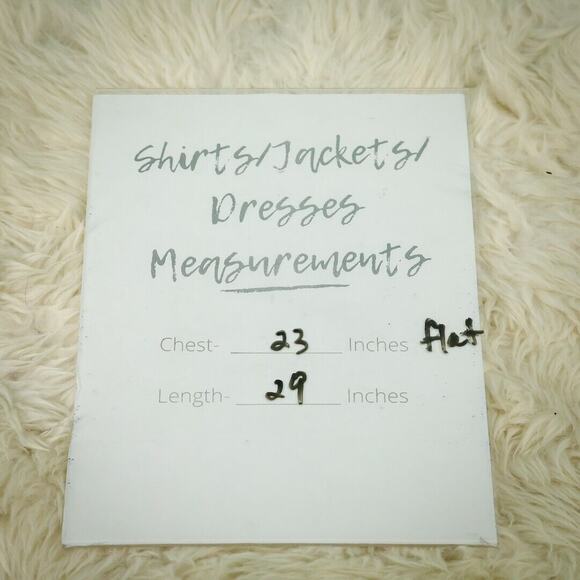 Shirts/Jackets/
Dresses
Measurements
Chest- 23 Inches flat
Length- 29 Inches